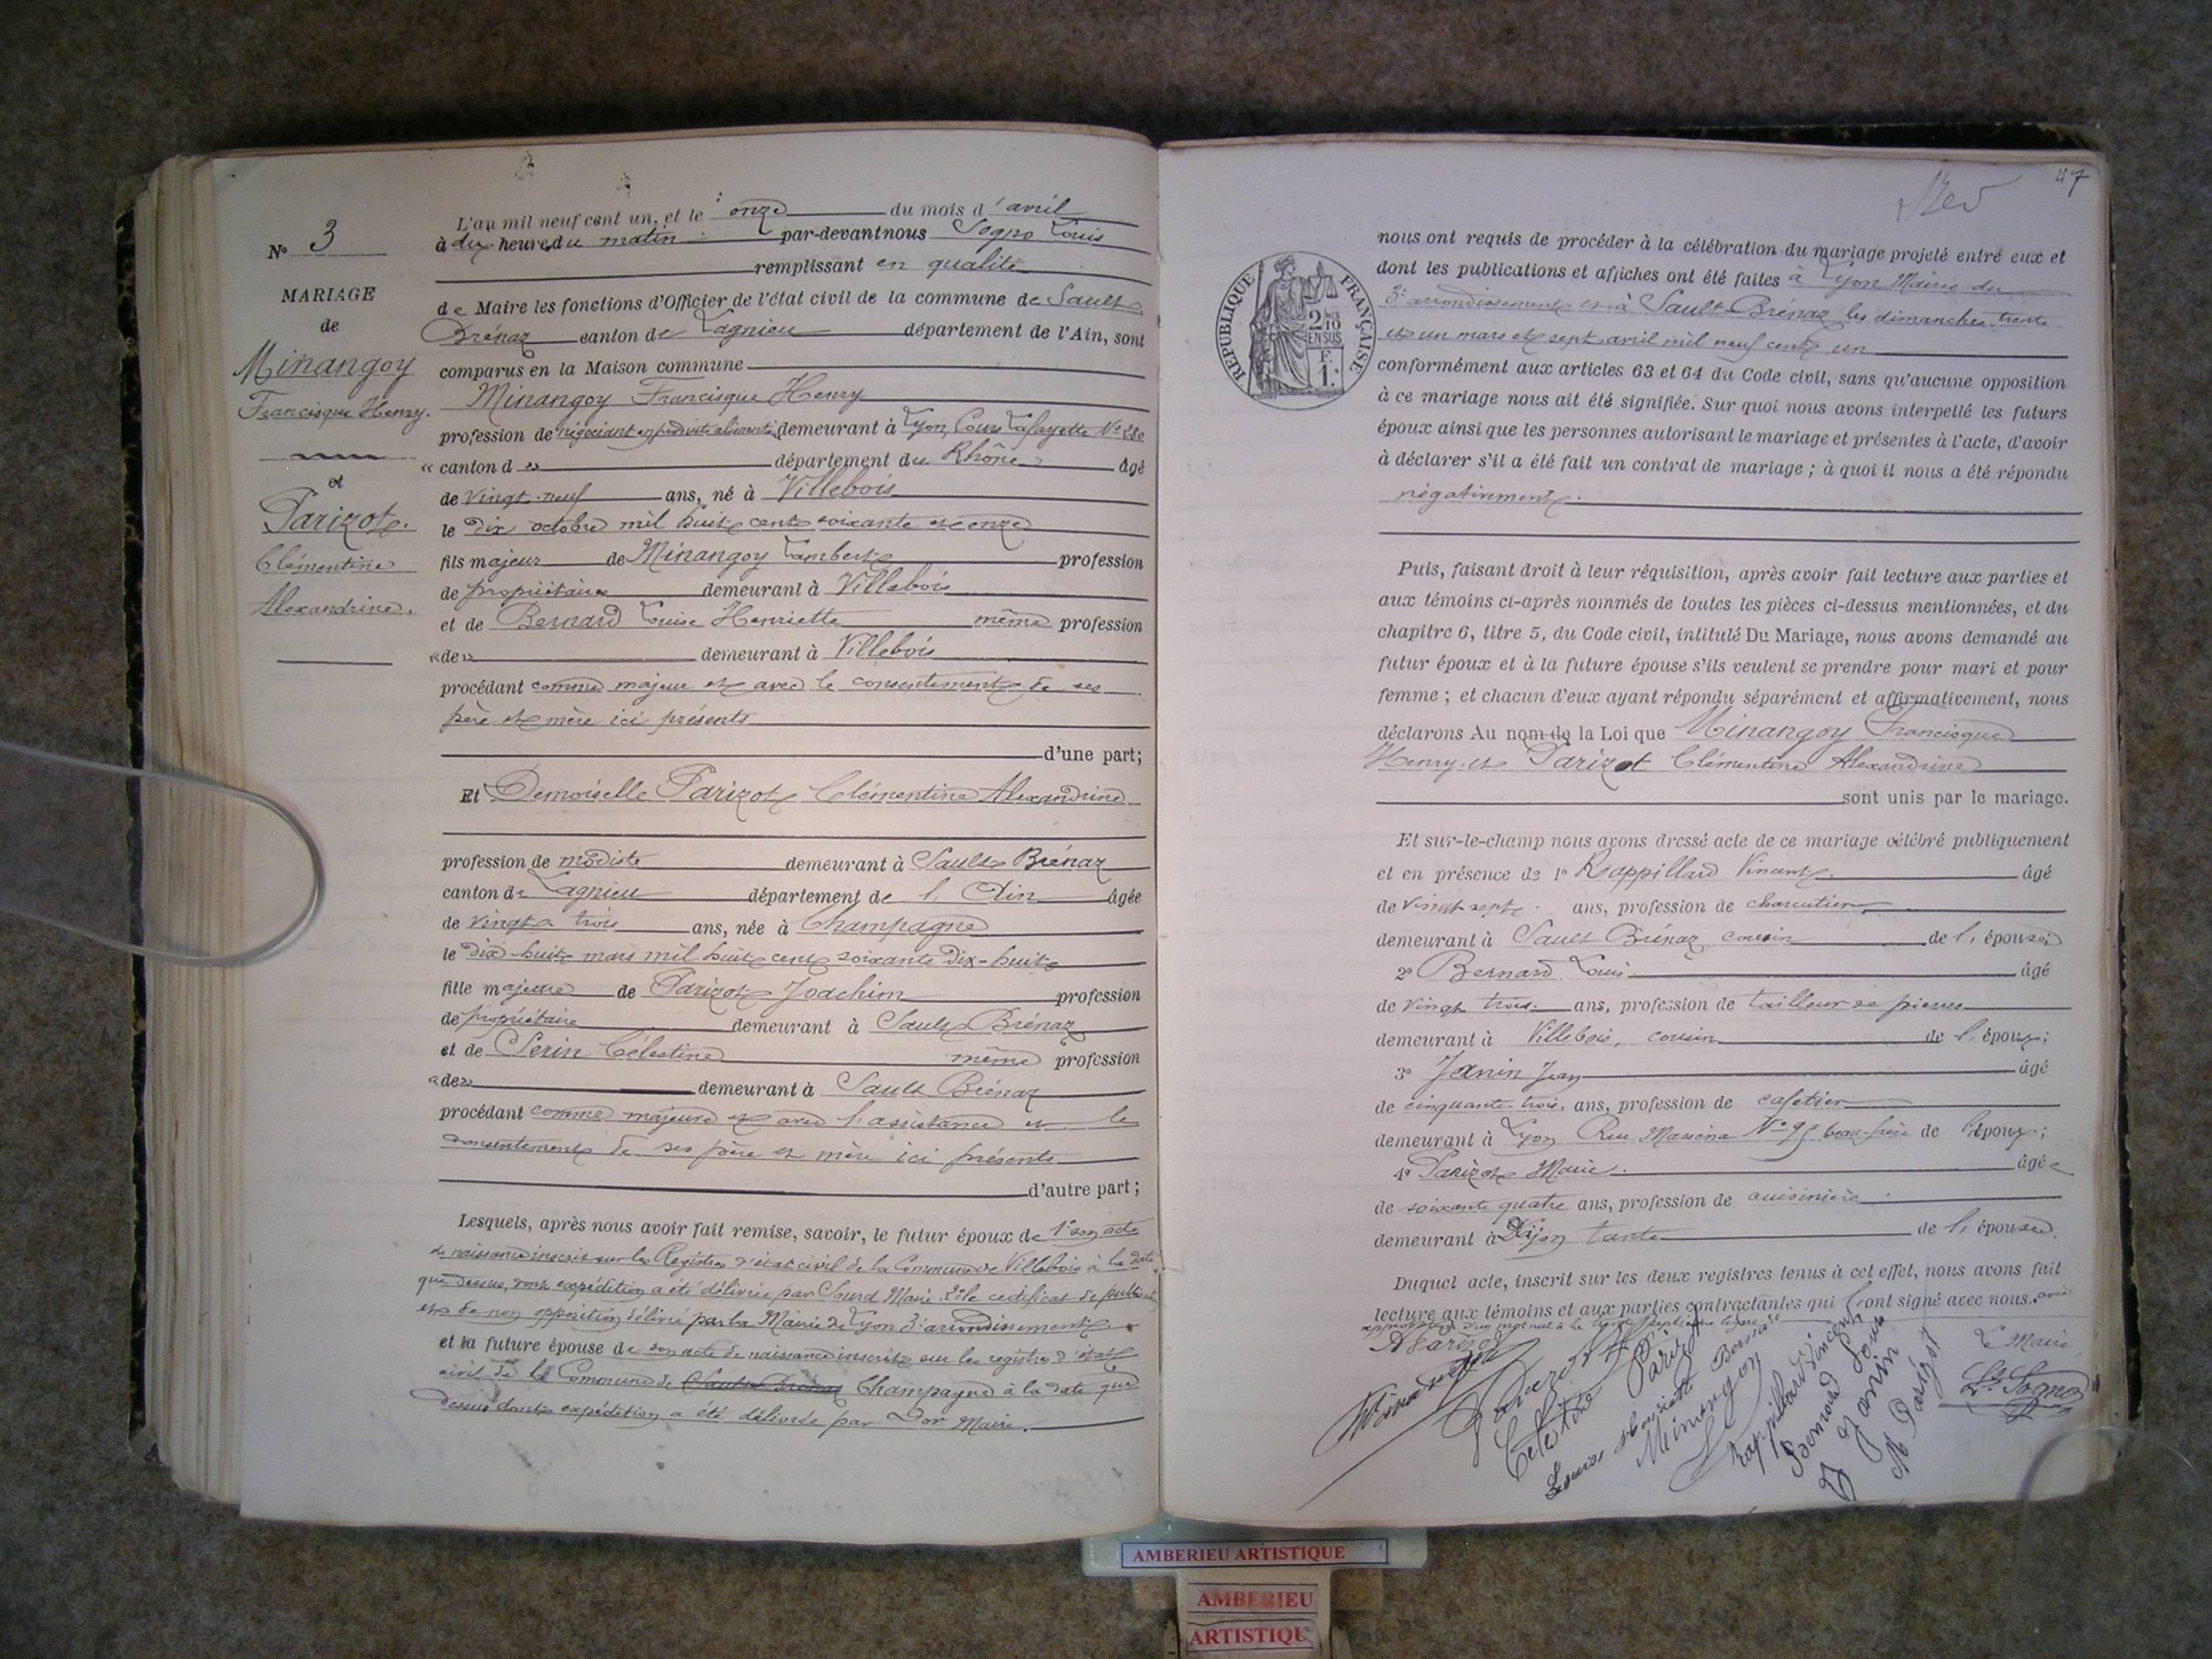 N° 3
MARIAGE
de
Minangoy
Francisque Henry.
et
Parizot.
Clémentine
Alexandrine.
L'an mil neuf cent un, et le onze du mois d'avril
à dix heures du matin par-devant nous Sogno Louis
remplissant en qualité
de Maire les fonctions d'Officier de l'état civil de la commune de Sault-
Brénaz canton de Lagnieu département de l'Ain, sont
comparus en la Maison commune
Minangoy Francisque Henry
profession de négociant en demeurant à Lyon, Cours Lafayette N°
« canton d » département du Rhône âgé
de vingt-neuf ans, né à Villebois
le dix octobre mil huit cent soixante et onze
fils majeur de Minangoy Lambert profession
de propriétaire demeurant à Villebois
et de Bernard Louise Henriette même profession
« de » demeurant à Villebois
procédant comme majeur et avec le consentement de ses
père et mère ici présents
d'une part;
Et Demoiselle Parizot Clémentine Alexandrine
profession de modiste demeurant à Sault-Brénaz
canton de Lagnieu département de l'Ain âgée
de vingt trois ans, née à Champagne
le dix-huit mars mil huit cent soixante dix-huit
fille majeure de Parizot Joachim profession
de propriétaire demeurant à Sault-Brénaz
et de Perin Célestine même profession
« de » demeurant à Sault Brénaz
procédant comme majeure et avec l'assistance et le
consentement de ses père et mère ici présents
d'autre part;
Lesquels, après nous avoir fait remise, savoir, le futur époux de 1° son acte
de naissance inscrit sur les Registres d'état civil de la Commune de Villebois à la date
que dessus, dont expédition a été délivrée par Sourd Maire. 2° le certificat de
et de non opposition délivré par la Mairie de Lyon 3e arrondissement
et la future épouse de son acte de naissance inscrit sur les registres d'état
civil de la Commune de Sault-Brénaz Champagne à la date que
dessus dont expédition a été délivrée par Dor Maire.
47
nous ont requis de procéder à la célébration du mariage projeté entre eux et
dont les publications et affiches ont été faites à Lyon Mairie du
3e arrondissement et à Sault-Brénaz les dimanches trente
et un mars et sept avril mil neuf cent un
conformément aux articles 63 et 64 du Code civil, sans qu'aucune opposition
à ce mariage nous ait été signifiée. Sur quoi nous avons interpellé les futurs
époux ainsi que les personnes autorisant le mariage et présentes à l'acte, d'avoir
à déclarer s'il a été fait un contrat de mariage ; à quoi il nous a été répondu
négativement.
RÉPUBLIQUE FRANÇAISE
2/10
EN SUS
F.
1.
Puis, faisant droit à leur réquisition, après avoir fait lecture aux parties et
aux témoins ci-après nommés de toutes les pièces ci-dessus mentionnées, et du
chapitre 6, titre 5, du Code civil, intitulé Du Mariage, nous avons demandé au
futur époux et à la future épouse s'ils veulent se prendre pour mari et pour
femme ; et chacun d'eux ayant répondu séparément et affirmativement, nous
déclarons Au nom de la Loi que Minangoy Francisque
Henry et Parizot Clémentine Alexandrine
sont unis par le mariage.
Et sur-le-champ nous avons dressé acte de ce mariage célébré publiquement
et en présence de 1° Rappillard Vincent. âgé
de vingt-sept ans, profession de charcutier,
demeurant à Sault Brénaz cousin de l'épouse;
2° Bernard Louis. âgé
de vingt trois. ans, profession de tailleur de pierres
demeurant à Villebois, cousin de l'époux;
3° Janin Jean âgé
de cinquante-trois. ans, profession de cafetier
demeurant à Lyon Rue Masséna N° 95 beau-frère de l'époux;
4° Parizot Marie. âgée
de soixante quatre ans, profession de cuisinière
demeurant à Dijon tante de l'épouse.
Duquel acte, inscrit sur les deux registres tenus à cet effet, nous avons fait
lecture aux témoins et aux parties contractantes qui l'ont signé avec nous. avec
approbation d'un mot nul à la ligne
A Parizot
Minangoy
Parizot
Célestine Parizot
Louise Henriette Bernard
Minangoy
Rappillard Vincent
Bernard Louis
J Janin
M Parizot
Le Maire,
Ls Sogno
AMBERIEU ARTISTIQUE
AMBERIEU
ARTISTIQUE